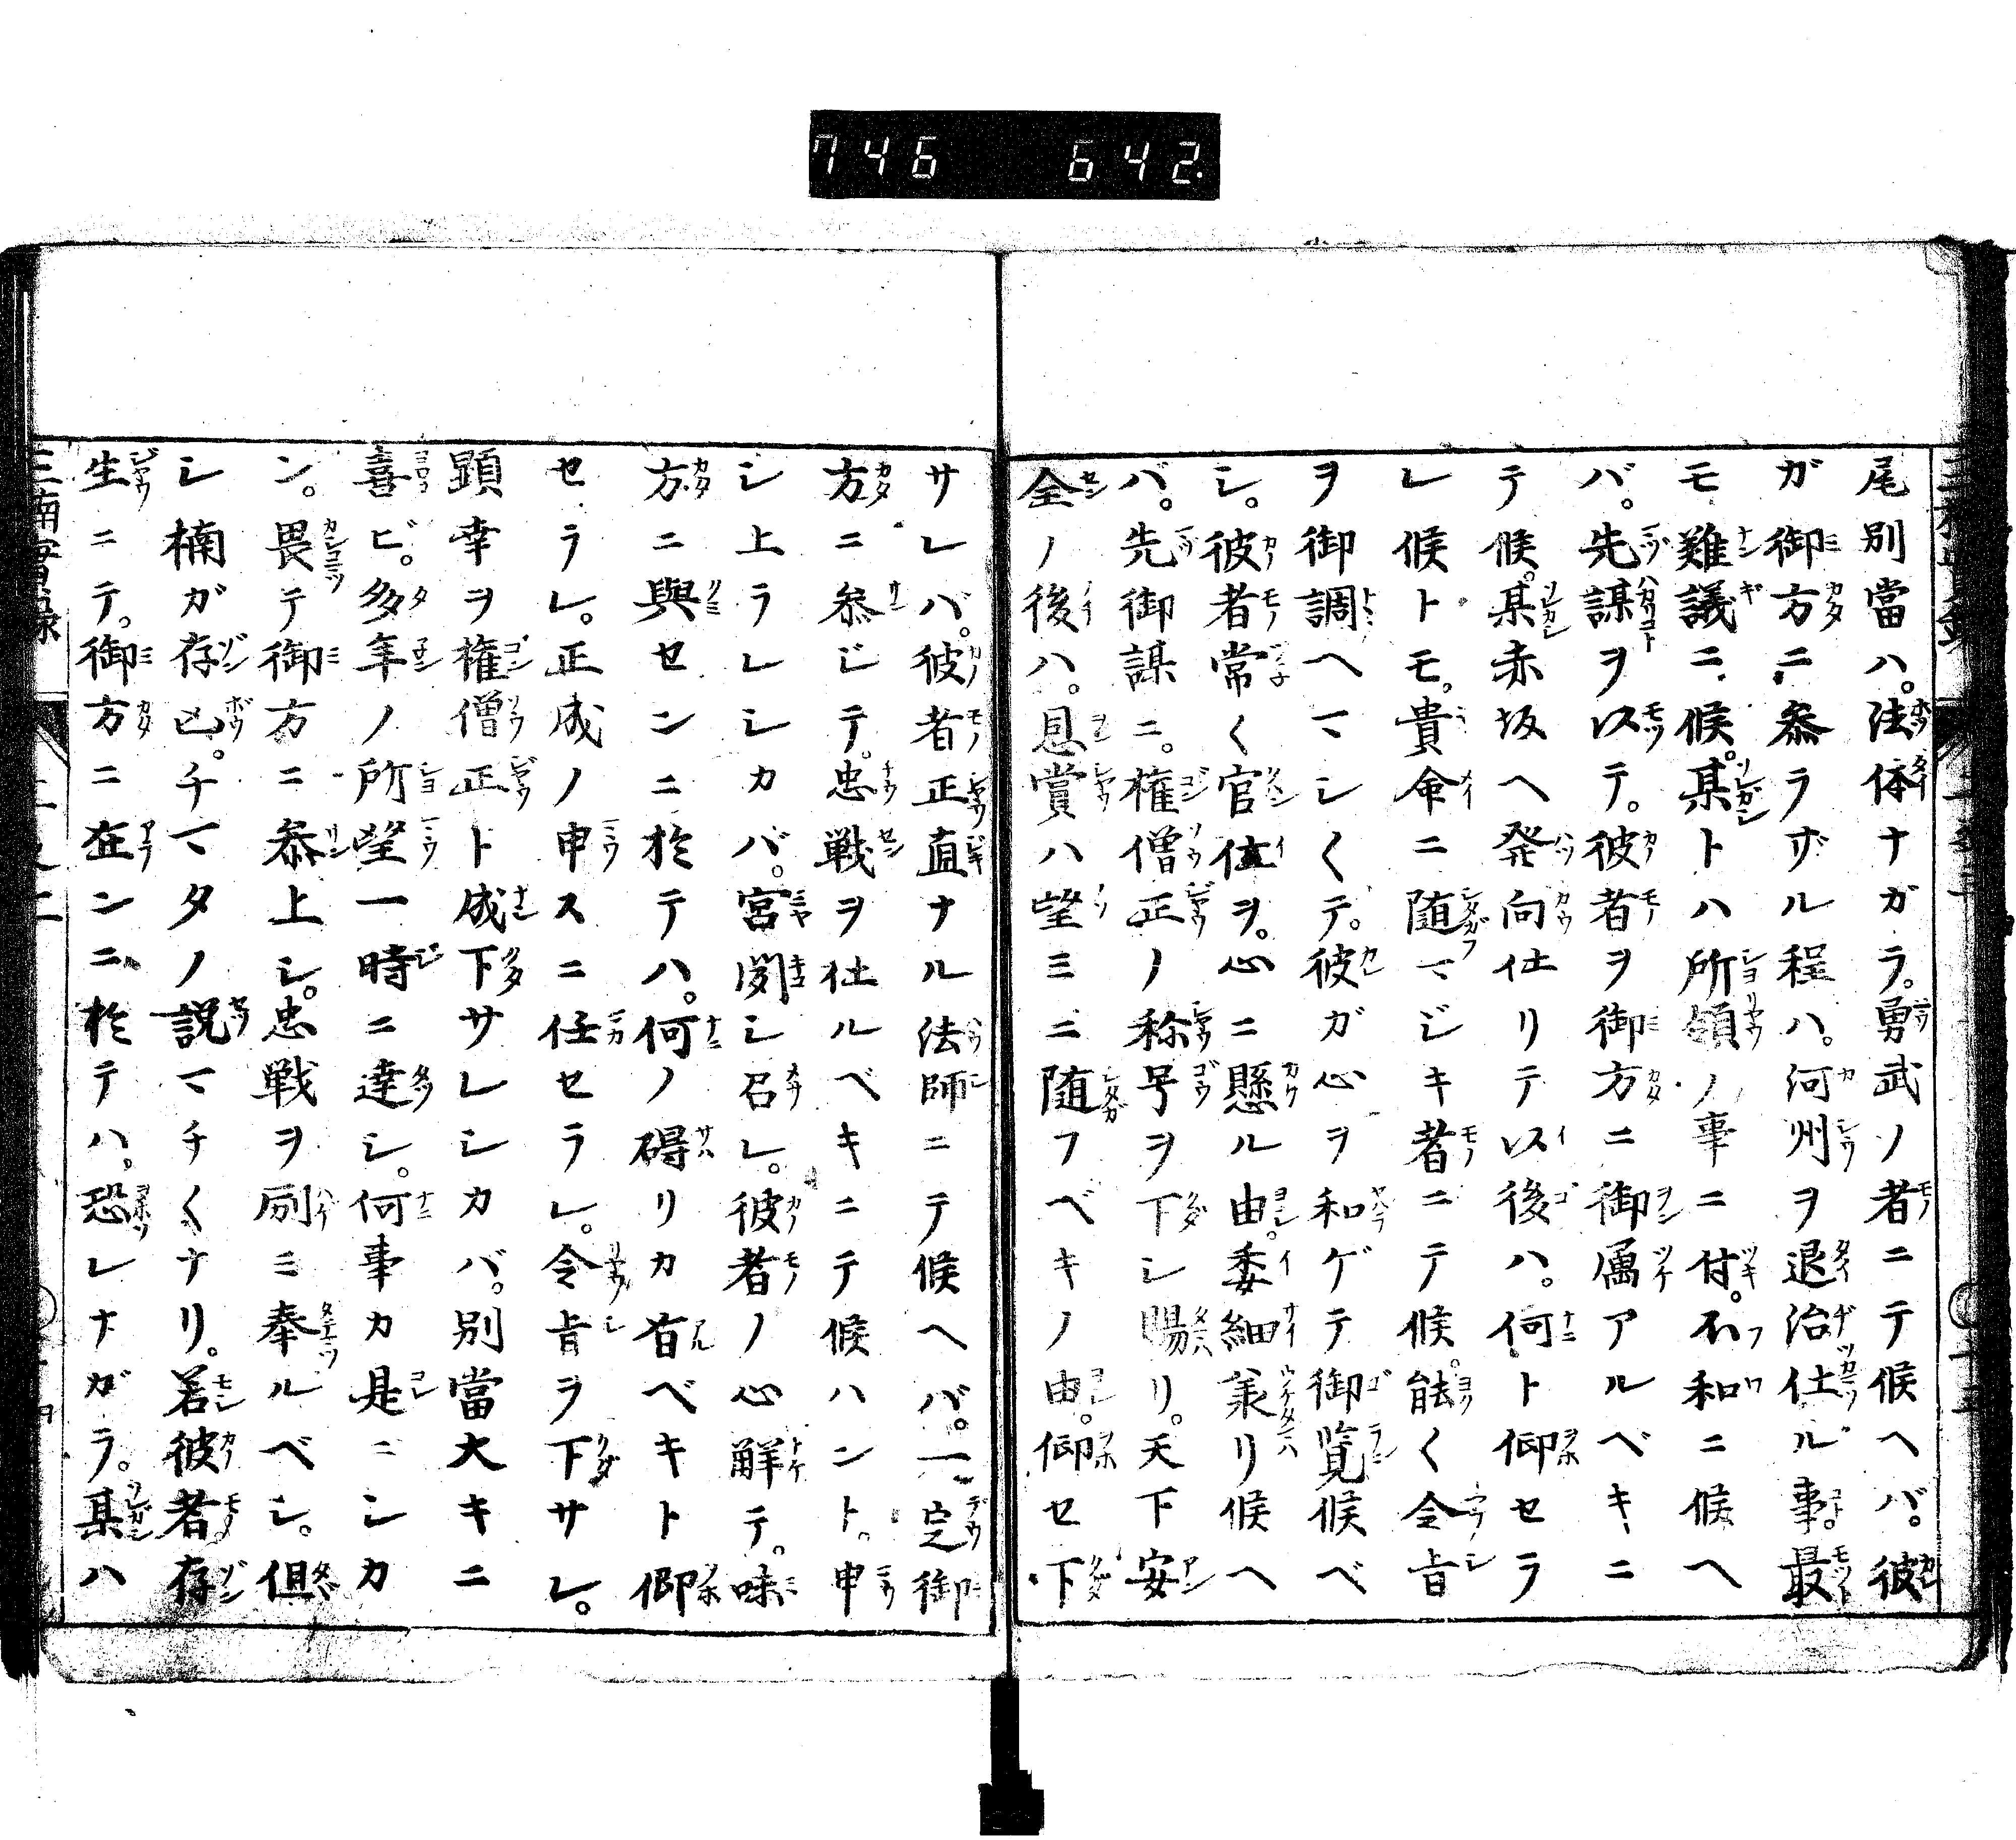 746 642.
尾別當ハ。法体ナガラ。勇武ノ者ニテ候ヘバ。彼
ガ御方ニ参ラザル程ハ。河州ヲ退治仕ル事。最
モ難議ニ候。某トハ所領ノ事ニ付。不和ニ候ヘ
バ。先謀ヲ以テ。彼者ヲ御方ニ御属アルベキニ
テ候。某赤坂ヘ発向仕リテ以後ハ。何ト仰セラ
レ候トモ。貴命ニ随マジキ者ニテ候。能く令旨
ヲ御調ヘマシくテ。彼ガ心ヲ和ゲテ御覧候ベ
シ。彼者常く官位ヲ。心ニ懸ル由。委細羕リ候ヘ
バ。先御謀ニ。権僧正ノ称号ヲ下シ賜リ。天下安
全ノ後ハ。恩賞ハ望ミニ随フベキノ由。仰セ下
サレバ。彼者正直ナル法師ニテ候ヘバ。一定御
方ニ参ジテ。忠戦ヲ仕ルベキニテ候ハント。申
シ上ラレシカバ。宮聞シ召レ。彼者ノ心解テ。味
方ニ與センニ於テハ。何ノ碍リカ有ベキト仰
セラレ。正成ノ申スニ任セラレ。令旨ヲ下サレ。
顕幸ヲ権僧正ト成下サレシカバ。別當大キニ
喜ビ。多年ノ所望一時ニ達シ。何事カ是ニシカ
ン。畏テ御方ニ参上シ。忠戦ヲ励ミ奉ルベシ。但
シ楠ガ存亡。チマタノ説マチくナリ。若彼者存
生ニテ。御方ニ在ンニ於テハ。恐レナガラ。某ハ